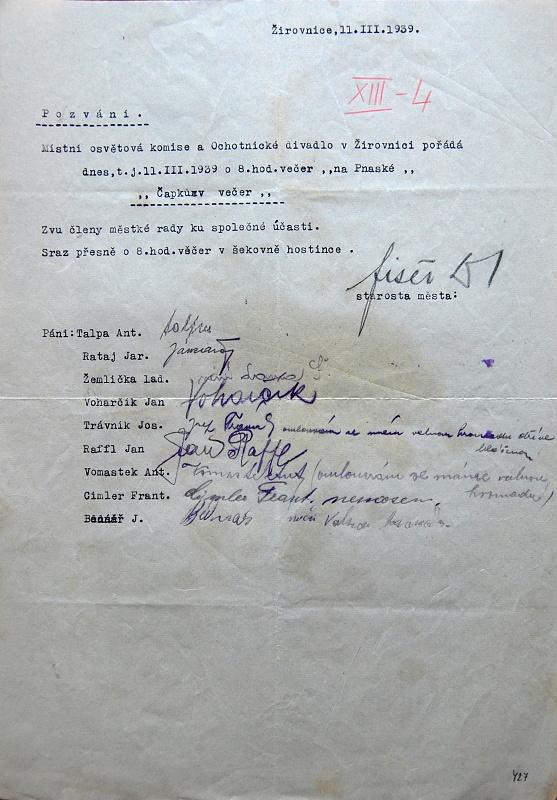 Žirovnice,11.III.1939.
XIII-4
Pozvání.
Místní osvětová komise a Ochotnické divadlo v Žirovnici pořádá
dnes,t.j.11.III.1939 o 8.hod.večer ,,na Pnaské ,,
,, Čapkův večer ,,
Zvu členy městké rady ku společné účasti.
Sraz přesně o 8.hod.věčer v šekovně hostince .
starosta města:
Páni:Talpa Ant.
Rataj Jar.
Žemlička lad.
Voharčík Jan Voharčík
Trávník Jos. omlouvám se mám valnou hromadu
Raffl Jan Jan Raffl
Vomastek Ant. (omlouvám se máme valnou hromadu)
Cimler Frant. Cimler Frant. nemocen.
Benář J.
427